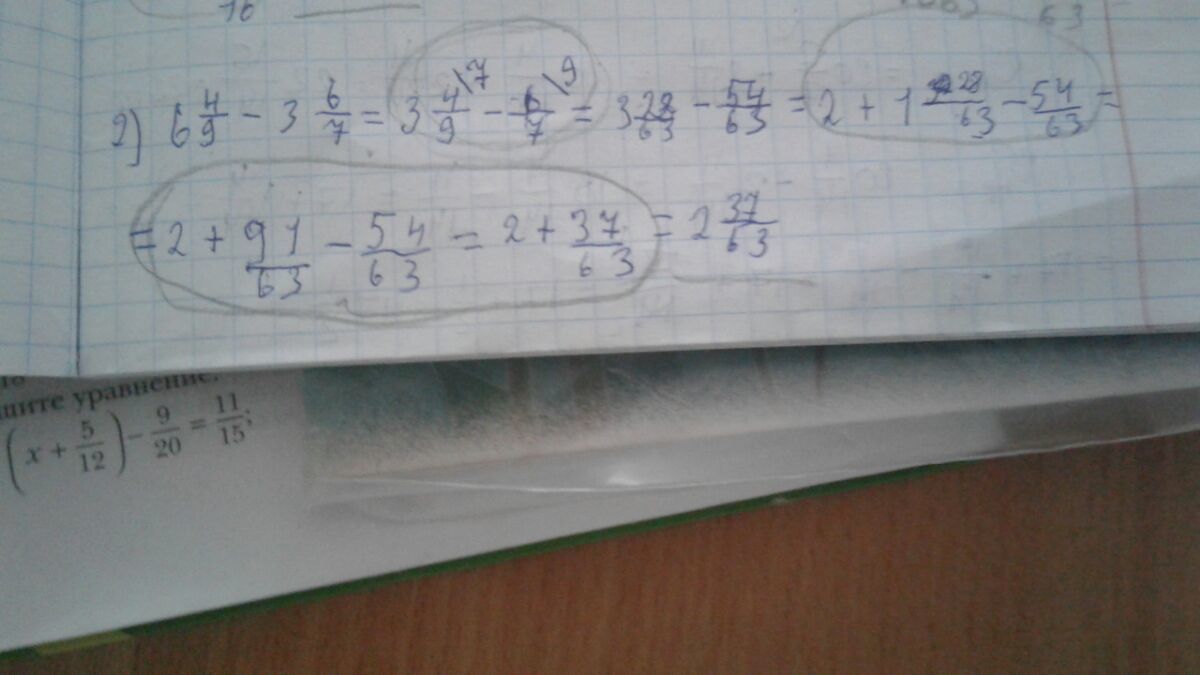 16 63
2) 6 4/9 - 3 6/7 = 3 4/9\7 - 6/7\9 = 3 28/63 - 54/63 = 2 + 1 28/63 - 54/63 =
= 2 + 91/63 - 54/63 = 2 + 37/63 = 2 37/63
уравнение:
(x + 5/12) - 9/20 = 11/15;